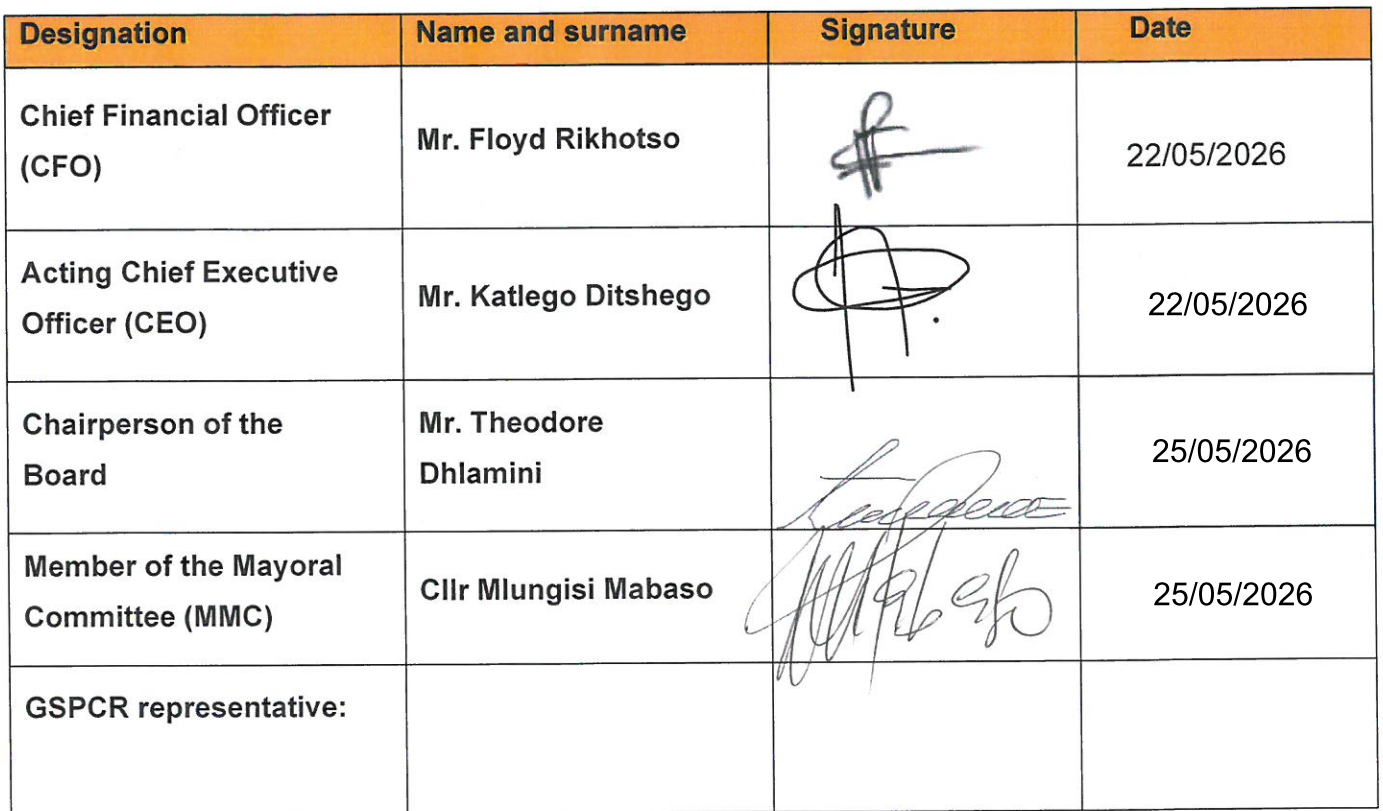 Designation Name and surname Signature Date
Chief Financial Officer
(CFO)
Mr. Floyd Rikhotso
22/05/2026
Acting Chief Executive
Officer (CEO)
Mr. Katlego Ditshego
22/05/2026
Chairperson of the
Board
Mr. Theodore
Dhlamini
25/05/2026
Member of the Mayoral
Committee (MMC)
Cllr Mlungisi Mabaso
25/05/2026
GSPCR representative: